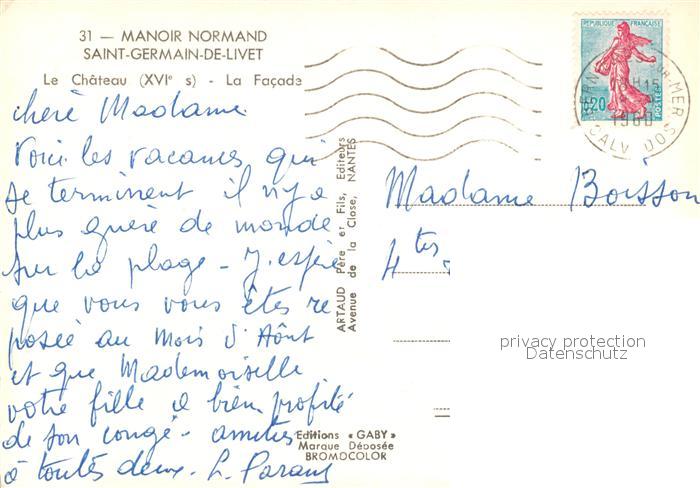 31 — MANOIR NORMAND
SAINT-GERMAIN-DE-LIVET
Le Château (XVIe s) - La Façade
chère Madame
Voici les vacances qui
se terminent il n'y a
plus guère de monde
sur la plage - J'espère
que vous vous êtes re
posée au Mois d'Août
et que Mademoiselle
votre fille a bien profité
de son congé - amitiés
à toutes deux. L.
ARTAUD Père et Fils, Editeurs
Avenue de la Close, NANTES
Editions « GABY »
Marque Déposée
BROMOCOLOR
REPUBLIQUE FRANÇAISE
0,20
POSTES
15
1960
SUR MER
CALVADOS
Madame Boisson
4 ter
privacy protection
Datenschutz